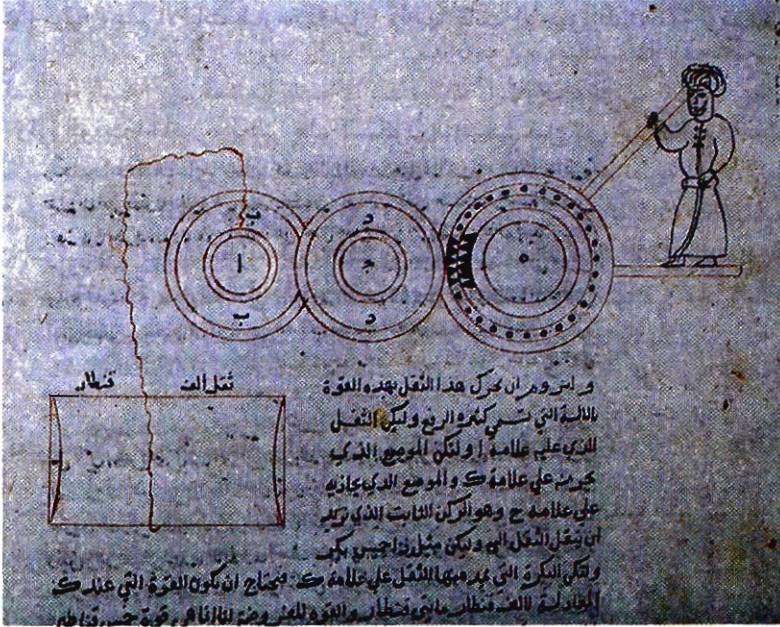 ب
ا
ب
د
ج
د
ه
ثقل ألف قنطار
ولنروم ان نحرك هذا الثقل بهذه القوة
بالالة التي تسمى كثيرة الرفع وليكن الثقل
الذي علي علامة ا ولتكن الموضع الذي
علي علامة ك والموضع الذي يحاذيه
علي علامة ح وهو الركن الثابت الذي نريد
أن ننقل الثقل الي وليكن
ولتكن البكرة التي فيها الثقل علي علامة ك فيحتاج ان تكون القوة التي عند ك
المعادلة لالف قنطار مايتي قنطار والقوة المفروضة لنا انما هي قوة خمس قناطير